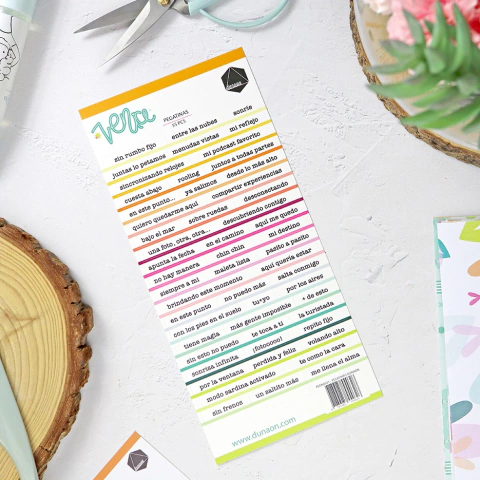 vente
PEGATINAS
55 PCS
DUNAON
sin rumbo fijo entre las nubes sonríe
juntos lo petamos menudas vistas mi reflejo
sincronizando relojes mi podcast favorito
cuesta abajo rooling juntos a todas partes
en este punto... ya salimos desde lo más alto
quiero quedarme aquí compartir experiencias
bajo el mar sobre ruedas desconectando
una foto, otra, otra... descubriendo contigo
apunta la fecha en el camino aquí me quedo
no hay manera chin chin mi destino
siempre a mi maleta lista pasito a pasito
brindando este momento aquí quería estar
en este punto no puedo más salta conmigo
con los pies en el suelo tu+yo por los aires
tiene magia más gente imposible + de esto
sin esto no puedo te toca a ti la turistada
sonrisa infinita ¡fotooooo! repito fijo
por la ventana perdida y feliz volando alto
modo sardina activado te como la cara
sin frenos un saltito más me llena el alma
www.dunaon.com
DUNAON